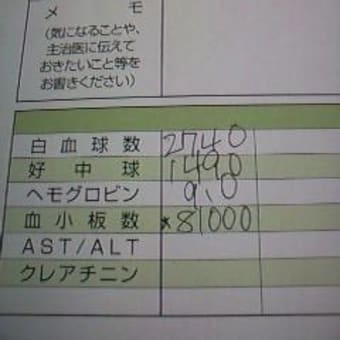 メモ
(気になることや、
主治医に伝えて
おきたいこと等を
お書きください)
白血球数 2740
好中球 1490
ヘモグロビン 9.0
血小板数 *81000
AST/ALT
クレアチニン